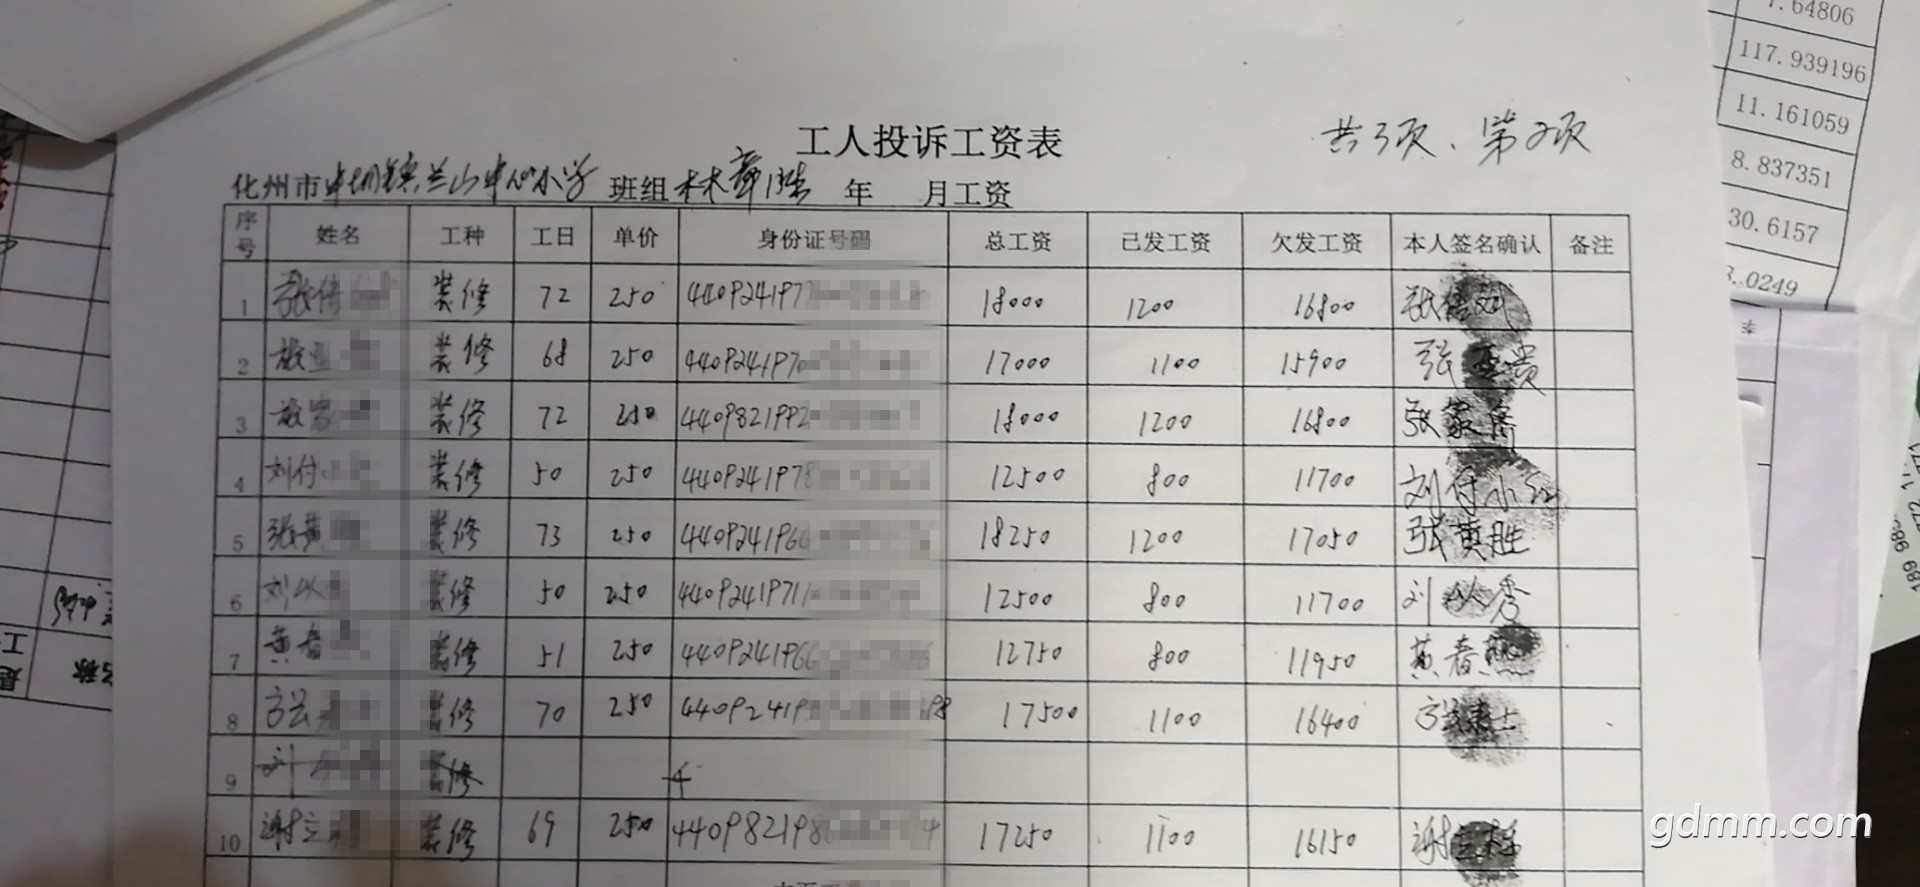 7.64806
117.939196
11.161059
8.837351
30.6157
3.0249
工人投诉工资表
共3页、第2页
化州市中垌镇兰山中心小学 班组 林章胜 年 月工资
序号 姓名 工种 工日 单价 身份证号码 总工资 已发工资 欠发工资 本人签名确认 备注
1 张倍 装修 72 250 440924197 18000 1200 16800 张倍
2 张亚 装修 68 250 440924197 17000 1100 15900 张亚贵
3 张家 装修 72 250 4409821992 18000 1200 16800 张家
4 刘付小 装修 50 250 4409241978 12500 800 11700 刘付小红
5 张黄 装修 73 250 4409241966 18250 1200 17050 张黄胜
6 刘 装修 50 250 4409241971 12500 800 11700 刘 秀
7 黄春 装修 51 250 4409241966 12750 800 11950 黄春
8 方 装修 70 250 44092419 17500 1100 16400 方
9 刘 装修
10 谢立 装修 69 250 440982198 17250 1100 16150 谢
名称
gdmm.com